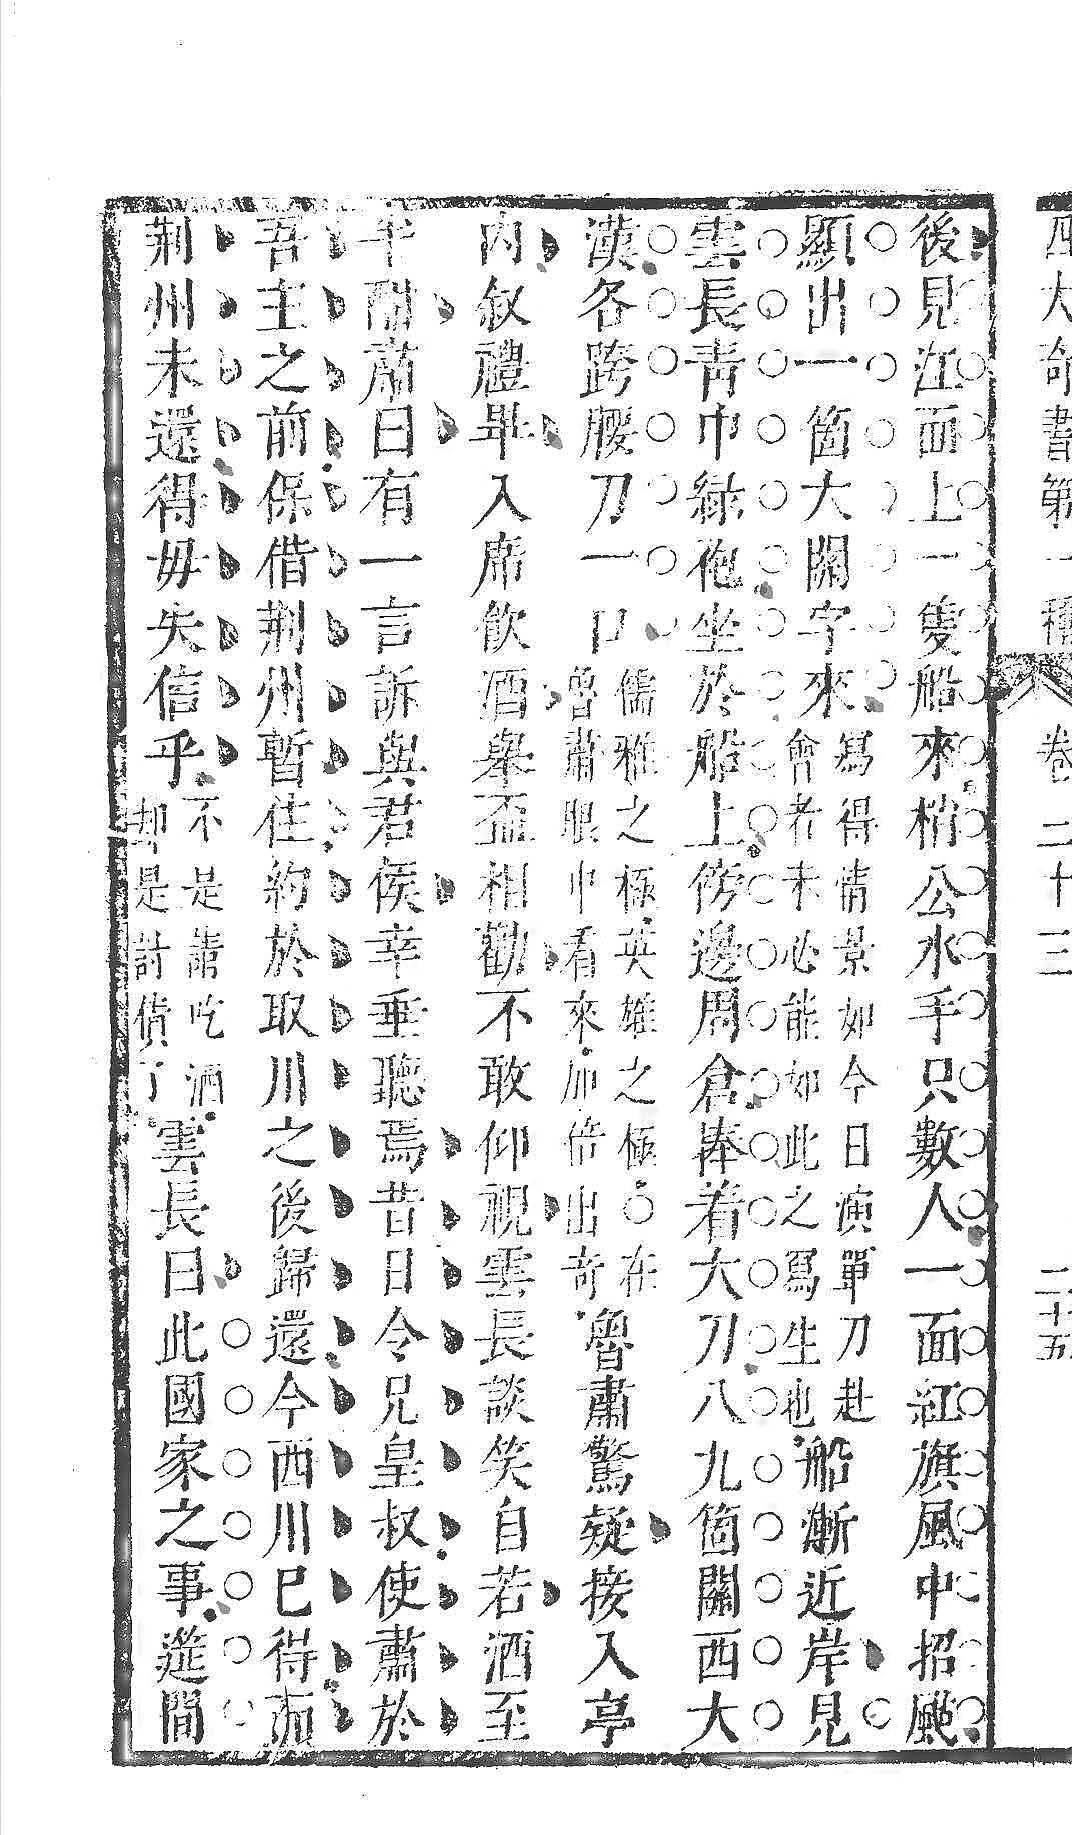 四大奇書第一種 卷二十三 二十五
後見江面上一隻船來梢公水手只數人一面紅旗風中招颭
顯出一箇大關字來寫得情景如今日演單刀赴會者未必能如此之寫生也船漸近岸見
雲長青巾綠袍坐於船上傍邊周倉捧着大刀八九箇關西大
漢各跨腰刀一口儒雅之極英雄之極○在魯肅眼中看來加倍出奇魯肅驚疑接入亭
內叙禮畢入席飲酒舉盃相勸不敢仰視雲長談笑自若酒至
半酣肅曰有一言訴與君侯幸垂聽焉昔日令兄皇叔使肅於
吾主之前保借荆州暫住約於取川之後歸還今西川已得而
荆州未還得毋失信乎不是請吃酒却是討債了雲長曰此國家之事筵間